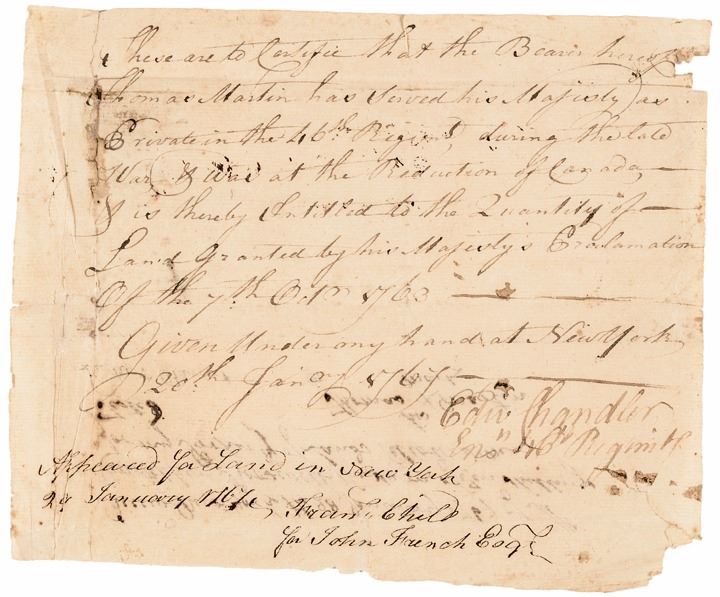 These are to Certifie that the Bearer hereof
Thomas Martin has Served his Majisty as
Private in the 46th Regimt, during the late
War, & was at the Reduction of Canada,
& is thereby Intitled to the Quantity of
Land Granted by his Majesty's Proclamation
Of the 7th Octr 1763
Given Under my hand at New York
20th Jany 1767
Edwd Chandler
Ensn 46th Regimtt
Appeared for Land in New York
29 January 1767
Frans Child
for John French Esqr